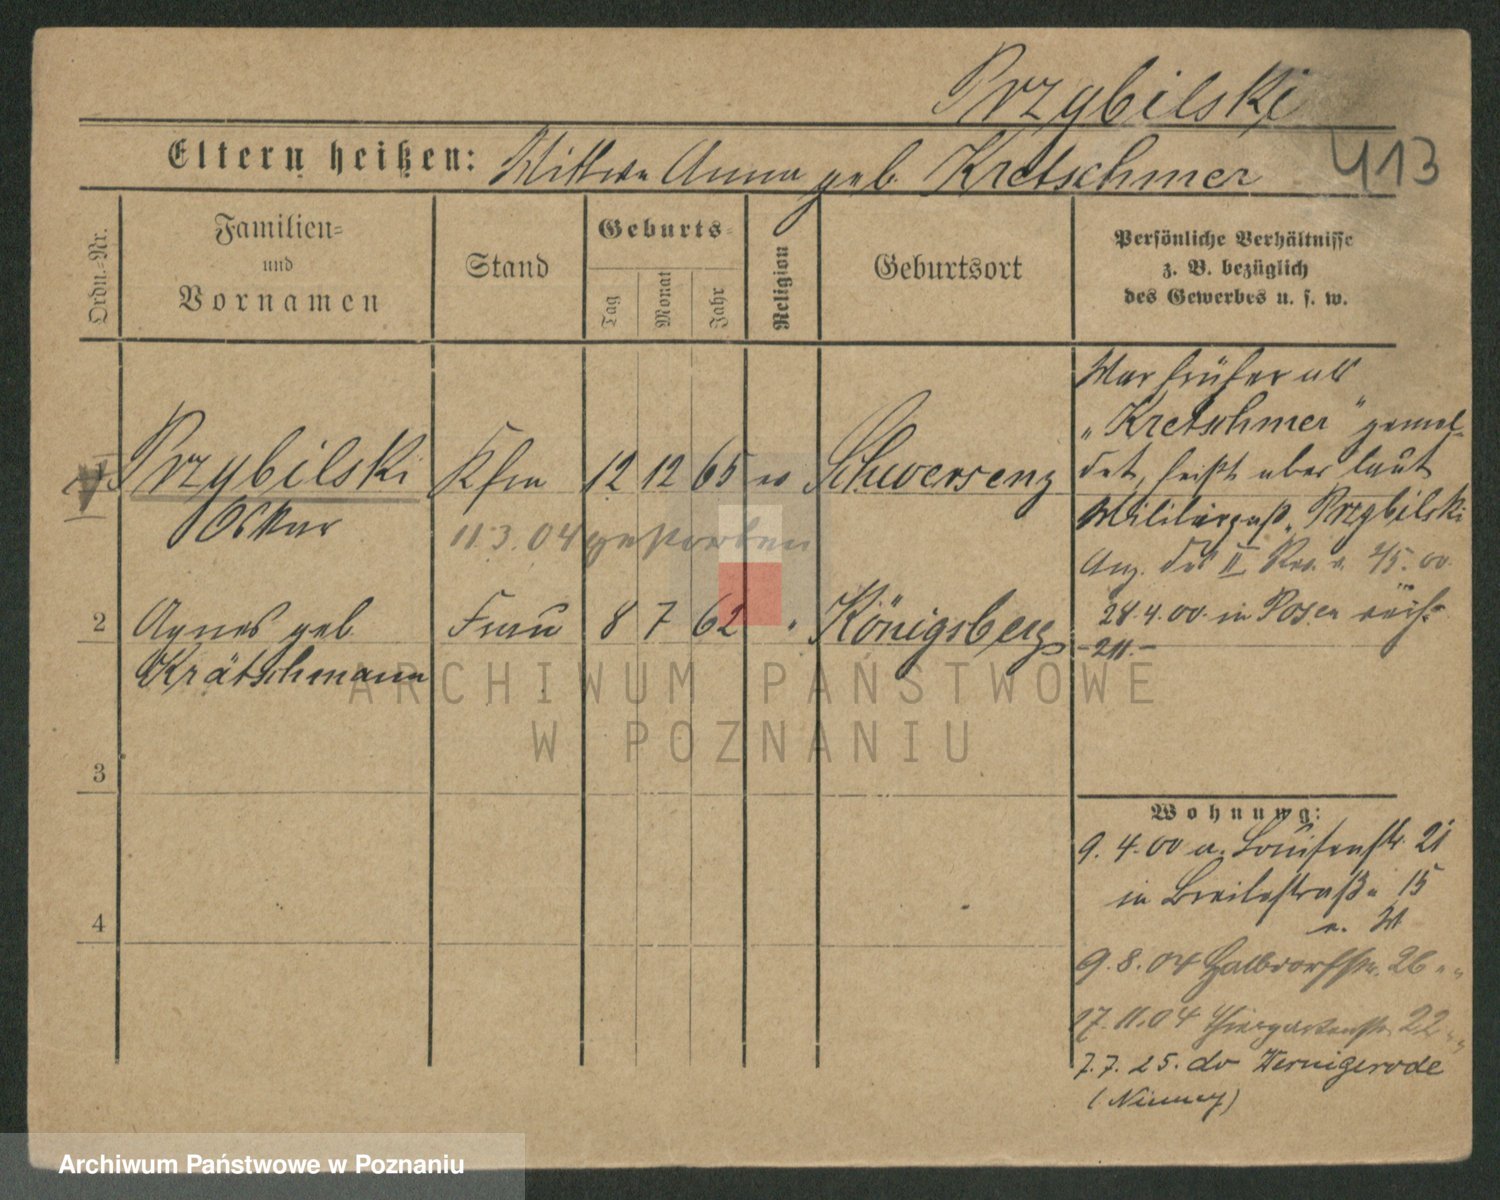 Przybilski
Eltern heißen: Wittwe Anna geb. Kretschmer 413
Ordn.-Nr.
Familien-
und
Vornamen
Stand
Geburts-
Tag
Monat
Jahr
Religion
Geburtsort
Persönliche Verhältnisse
z. B. bezüglich
des Gewerbes u. s. w.
1 Przybilski Kfm 12 12 65 ev Schwersenz
Oskar
11.3.04 gestorben
2 Agnes geb. Frau 8 7 62 " Königsberg
Krätschmann
3
4
War früher als
"Kretschmer" gemel-
det, heißt aber laut
Militärpaß "Przybilski
Anz. des II Rev. v. 4/5.00
28.4.00 in Posen
Wohnung:
9.4.00 a. Louisenstr. 21
in Breitestraße 15
9.8.04 Halbdorfstr. 26 " "
17.11.04 Thiergartenstr. 22 " "
7.7.25. do Wernigerode
ARCHIWUM PAŃSTWOWE
W POZNANIU
Archiwum Państwowe w Poznaniu